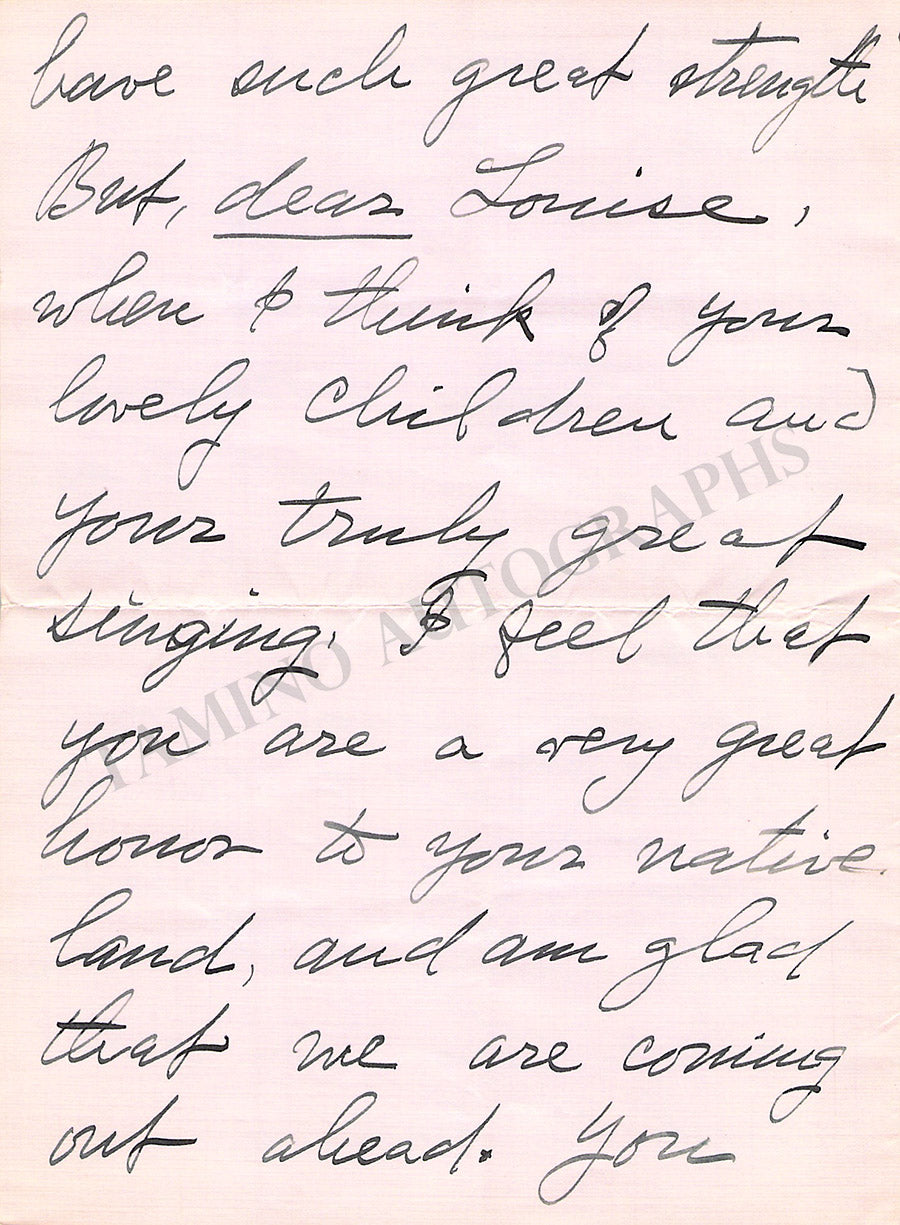 have such great strength
But, dear Louise,
when I think of your
lovely children and
your truly great
singing, I feel that
you are a very great
honor to your native
land, and am glad
that we are coming
out ahead. You
TAMINO AUTOGRAPHS